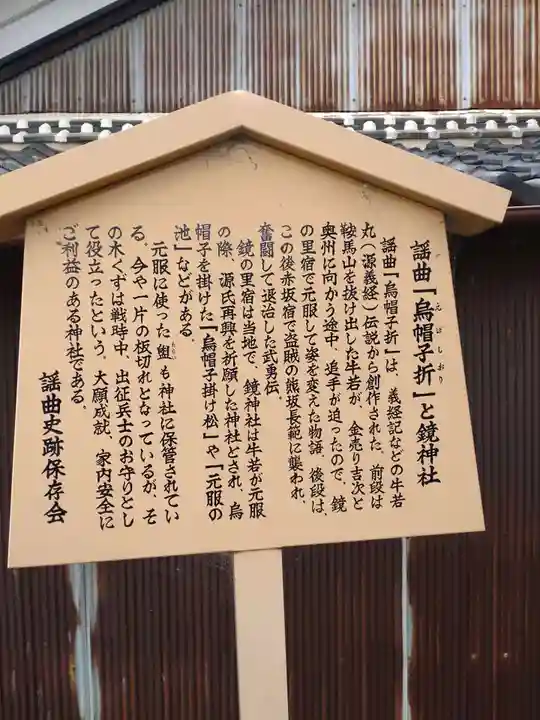 謡曲「烏帽子折」と鏡神社
えぼしおり
謡曲「烏帽子折」は、義経記などの牛若
丸（源義経）伝説から創作された、前段は
鞍馬山を抜け出した牛若が、金売り吉次と
奥州に向かう途中、追手が迫ったので、鏡
の里宿で元服して姿を変えた物語、後段は、
この後赤坂宿で盗賊の熊坂長範に襲われ、
奮闘して退治した武勇伝。
鏡の里宿は当地で、鏡神社は牛若が元服
の際、源氏再興を祈願した神社とされ、烏
帽子を掛けた「烏帽子掛け松」や「元服の
池」などがある。
元服に使った盥も神社に保管されてい
たらい
る。今や一片の板切れとなっているが、そ
の木くずは戦時中、出征兵士のお守りとし
て役立ったという。大願成就、家内安全に
ご利益のある神社である。
謡曲史跡保存会